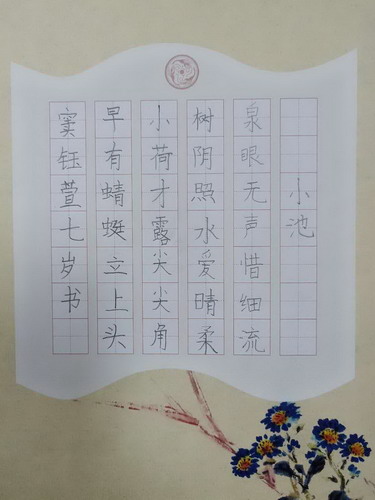 小池
泉眼无声惜细流
树阴照水爱晴柔
小荷才露尖尖角
早有蜻蜓立上头
窦钰萱七岁书